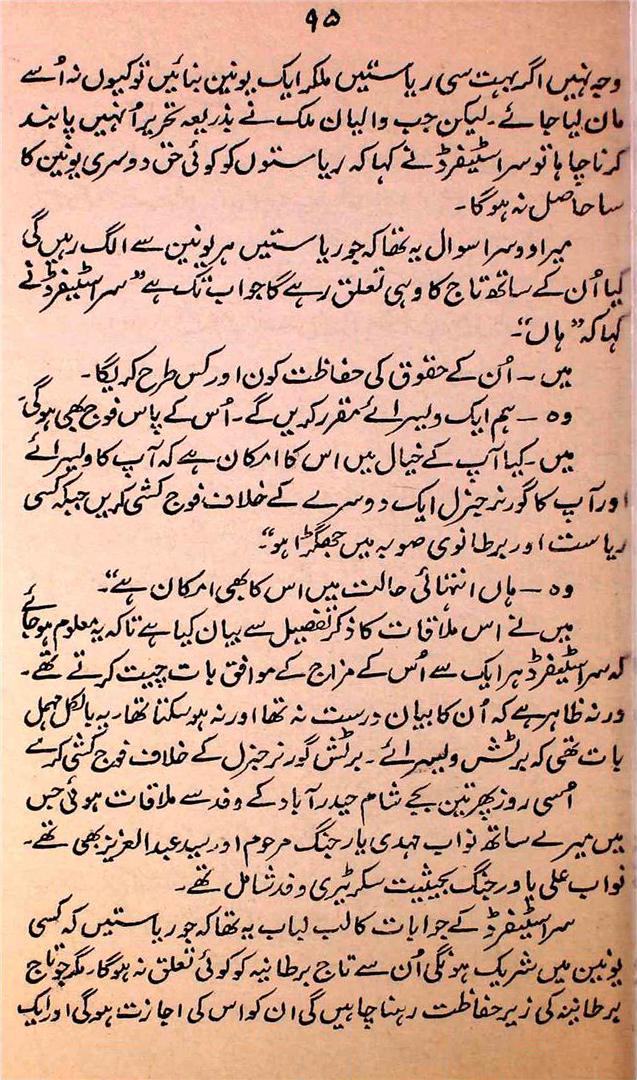 ۹۵
وجہ نہیں اگر بہت سی ریاستیں ملکر ایک یونین بنائیں تو کیوں نہ اُسے
مان لیا جائے۔ لیکن جب والیان ملک نے بذریعہ تحریر اُنہیں پابند
کرنا چاہا تو سر اسٹیفرڈ نے کہا کہ ریاستوں کو کوئی حق دوسری یونین کا
سا حاصل نہ ہوگا۔
میرا دوسرا سوال یہ تھا کہ جو ریاستیں ہر یونین سے الگ رہیں گی
کیا اُن کے ساتھ تاج کا وہی تعلق رہے گا جو اب تک ہے” سر اسٹیفرڈ نے
کہا کہ ” ہاں“۔
میں – اُن کے حقوق کی حفاظت کون اور کس طرح کریگا۔
وہ – ہم ایک ویسرائے مقرر کریں گے۔ اُس کے پاس فوج بھی ہوگی۔
میں۔ کیا آپ کے خیال میں اس کا امکان ہے کہ آپ کا ویسرائے
اور آپ کا گورنر جنرل ایک دوسرے کے خلاف فوج کشی کریں جبکہ کسی
ریاست اور برطانوی صوبہ میں جھگڑا ہو“۔
وہ – ہاں انتہائی حالت میں اس کا بھی امکان ہے“۔
میں نے اس ملاقات کا ذکر تفصیل سے بیان کیا ہے تاکہ یہ معلوم ہو جائے
کہ سر اسٹیفرڈ ہر ایک سے اُس کے مزاج کے موافق بات چیت کرتے تھے۔
ورنہ ظاہر ہے کہ اُن کا بیان درست نہ تھا اور نہ ہو سکتا تھا۔ یہ بالکل مہمل
بات تھی کہ برٹش ویسرائے۔ برٹش گورنر جنرل کے خلاف فوج کشی کرے
اُسی روز پھر تین بجے شام حیدرآباد کے وفد سے ملاقات ہوئی جس
میں میرے ساتھ نواب مہدی یار جنگ مرحوم اور سید عبدالعزیز بھی تھے۔
نواب علی یاور جنگ بحیثیت سکرٹیری وفد شامل تھے۔
سر اسٹیفرڈ کے جوابات کا لب لباب یہ تھا کہ جو ریاستیں کہ کسی
یونین میں شریک ہونگی اُن سے تاج برطانیہ کو کوئی تعلق نہ ہوگا۔ مگر جو تاج
برطانیہ کی زیر حفاظت رہنا چاہیں گی ان کو اس کی اجازت ہوگی اور ایک